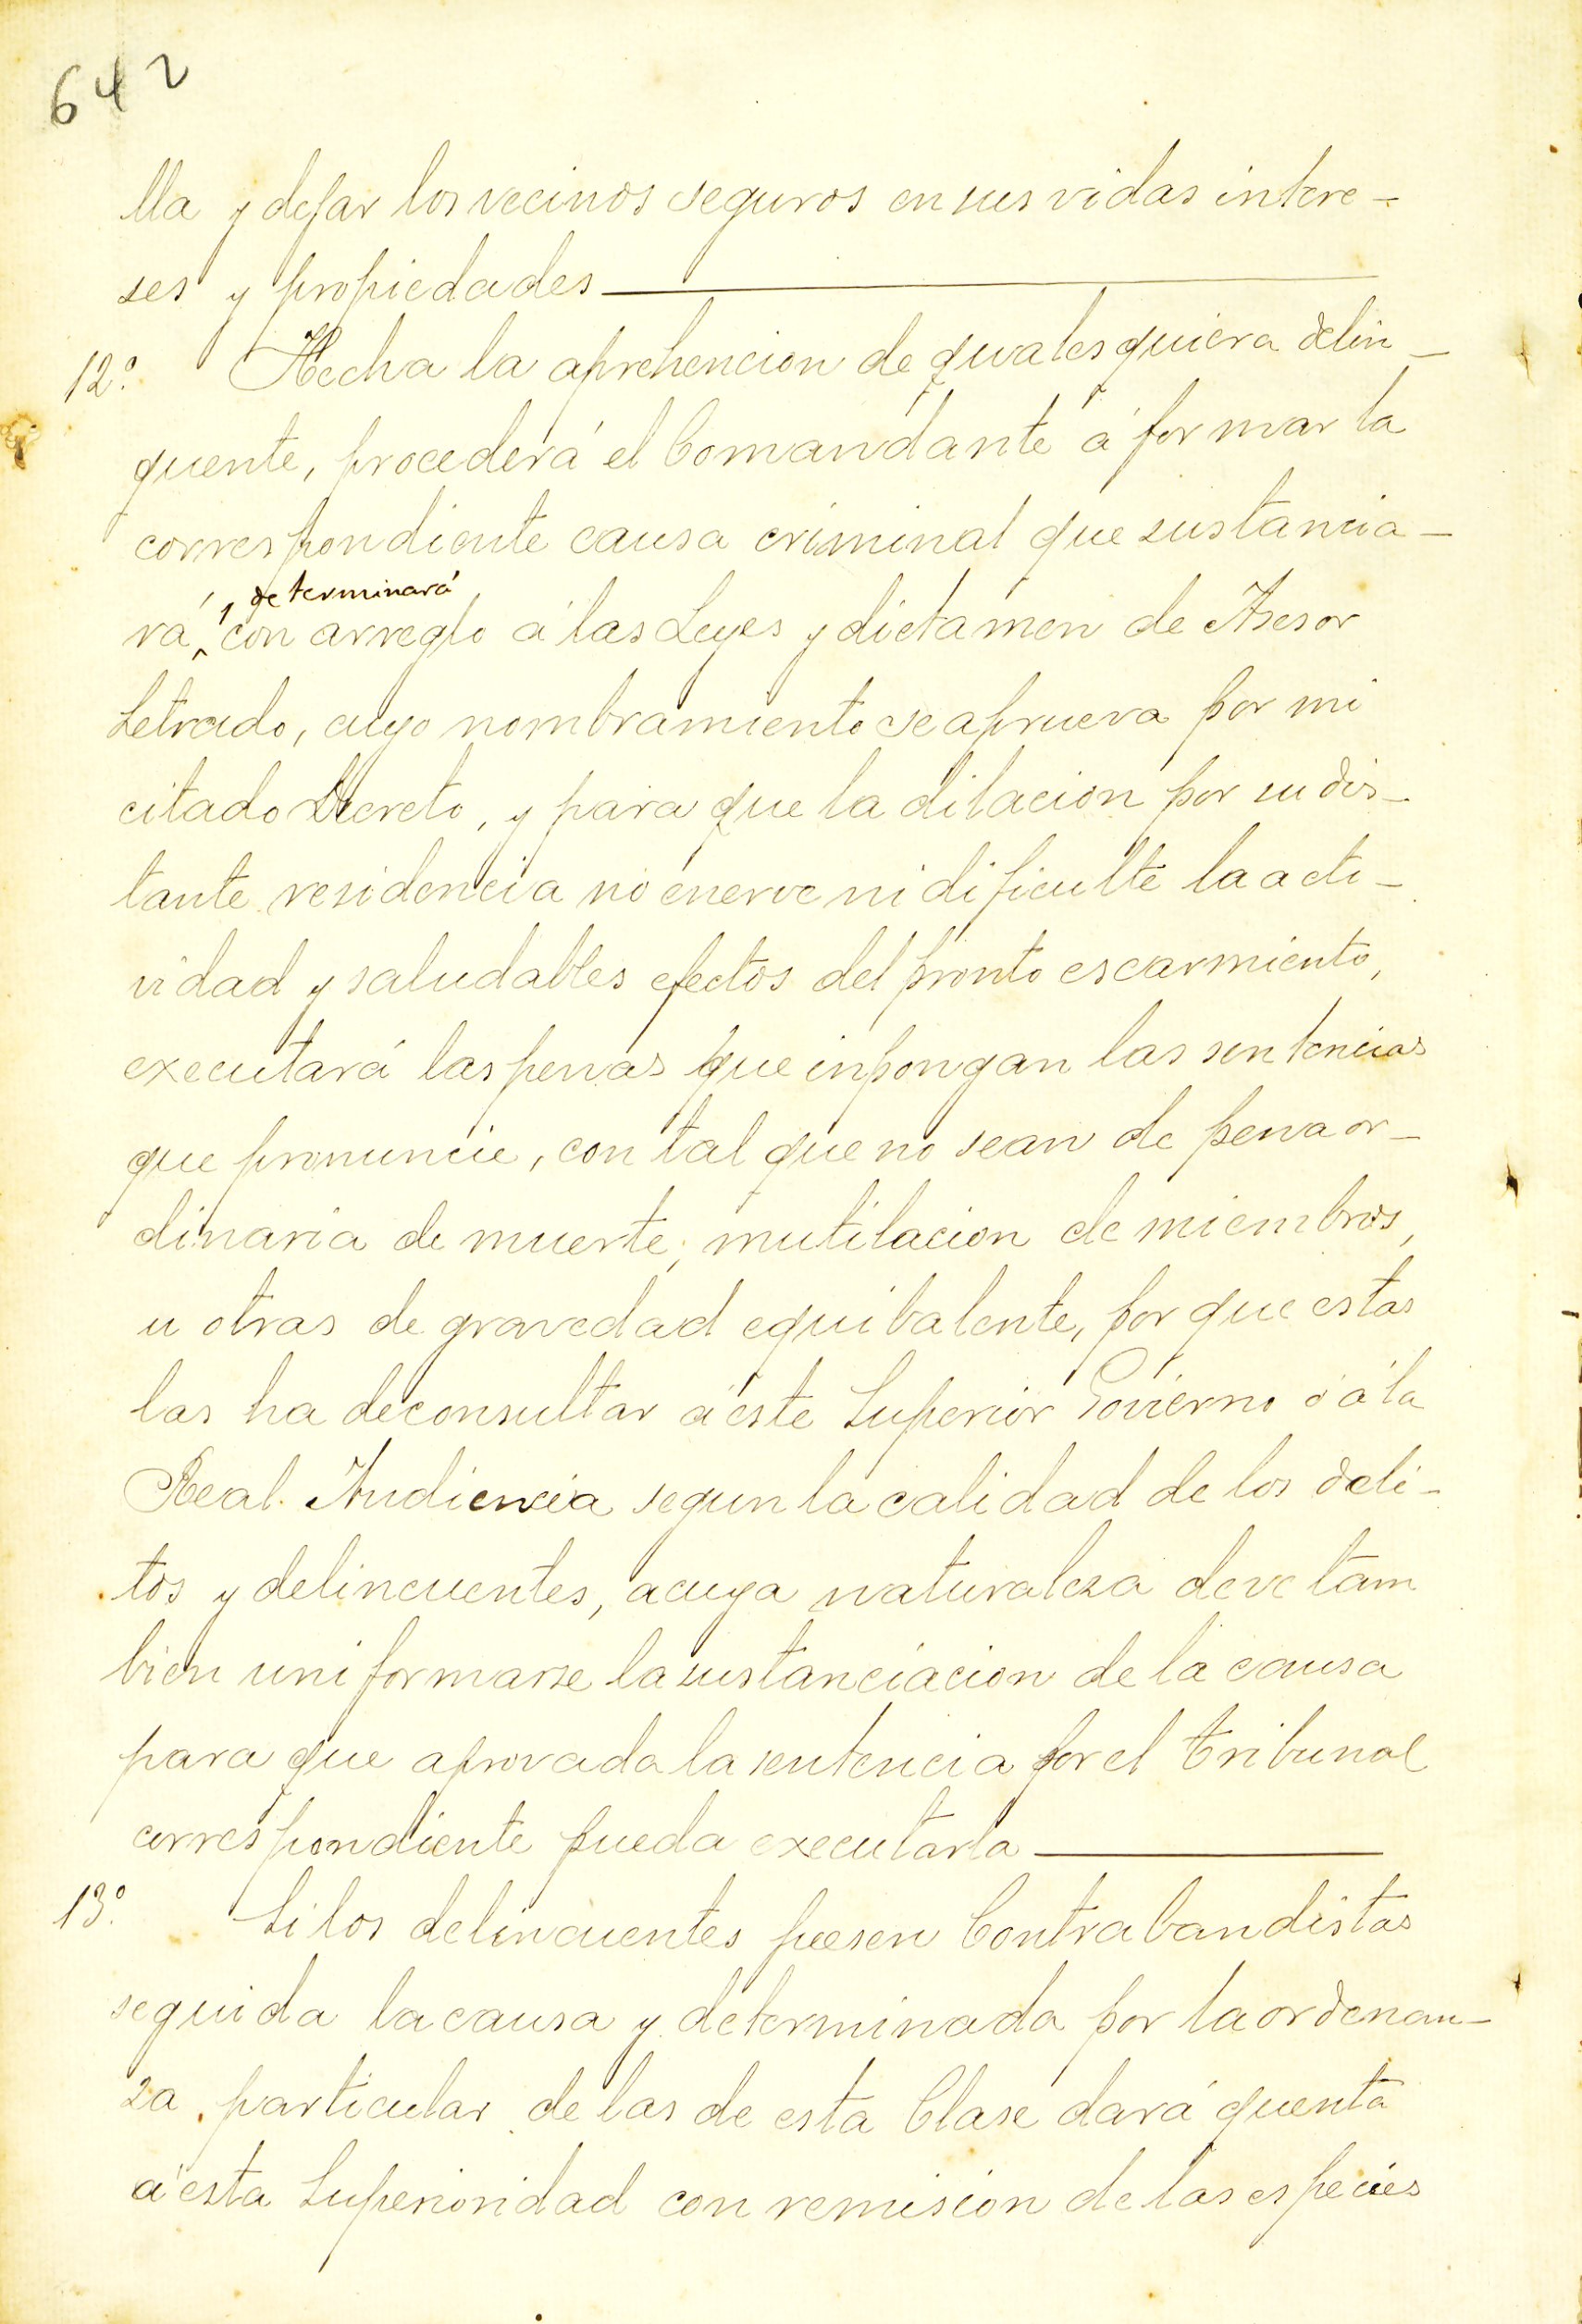 642
lla y dejar los vecinos seguros en sus vidas intere-
ses y propiedades
12º. Hecha la aprehencion de qualesquiera delin-
quente, procederá el Comandante á formar la
correspondiente causa criminal que sustancia-
y determinará
rá, con arreglo á las Leyes y dictamen de Asesor
Letrado, cuyo nombramiento se aprueva por mi
citado Decreto, y para que la dilacion por su dis-
tante residencia no enerve ni dificulte la acti-
vidad y saludables efectos del pronto escarmiento,
executará las penas que inpongan las sentencias
que pronuncie, con tal que no sean de pena or-
dinaria de muerte, mutilacion de miembros,
u otras de gravedad equibalente, por que estas
las ha de consultar á este Superior Govierno ó á la
Real Audiencia segun la calidad de los deli-
tos y delincuentes, a cuya naturaleza deve tam
bien uniformarse la sustanciacion de la causa
para que aprovada la sentencia por el tribunal
correspondiente pueda executarla
13º. Si los delincuentes fuesen Contrabandistas
seguida la causa y determinada por la ordenan-
za particular de las de esta Clase dará quenta
á esta Superioridad con remision de las especies